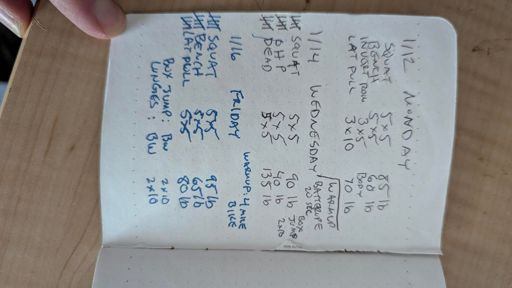 1/12 MONDAY
SQUAT 5x5 85 lb
BENCH 5x5 60 lb
INVERT ROW 3x5 BODY
LAT PULL 3x10 70 lb
1/14 WEDNESDAY
WARMUP
BATTLE ROPE
20 SEC
SQUAT 5x5 90 lb
OHP 5x5 40 lb
DEAD 5x5 135 lb
BOX
JUMP
2x10
1/16 FRIDAY
WARMUP .4 MILE
BIKE
SQUAT 5x5 95 lb
BENCH 5x5 65 lb
LAT PULL 5x5 80 lb
BOX JUMP: BW 2x10
LUNGES: BW 2x10